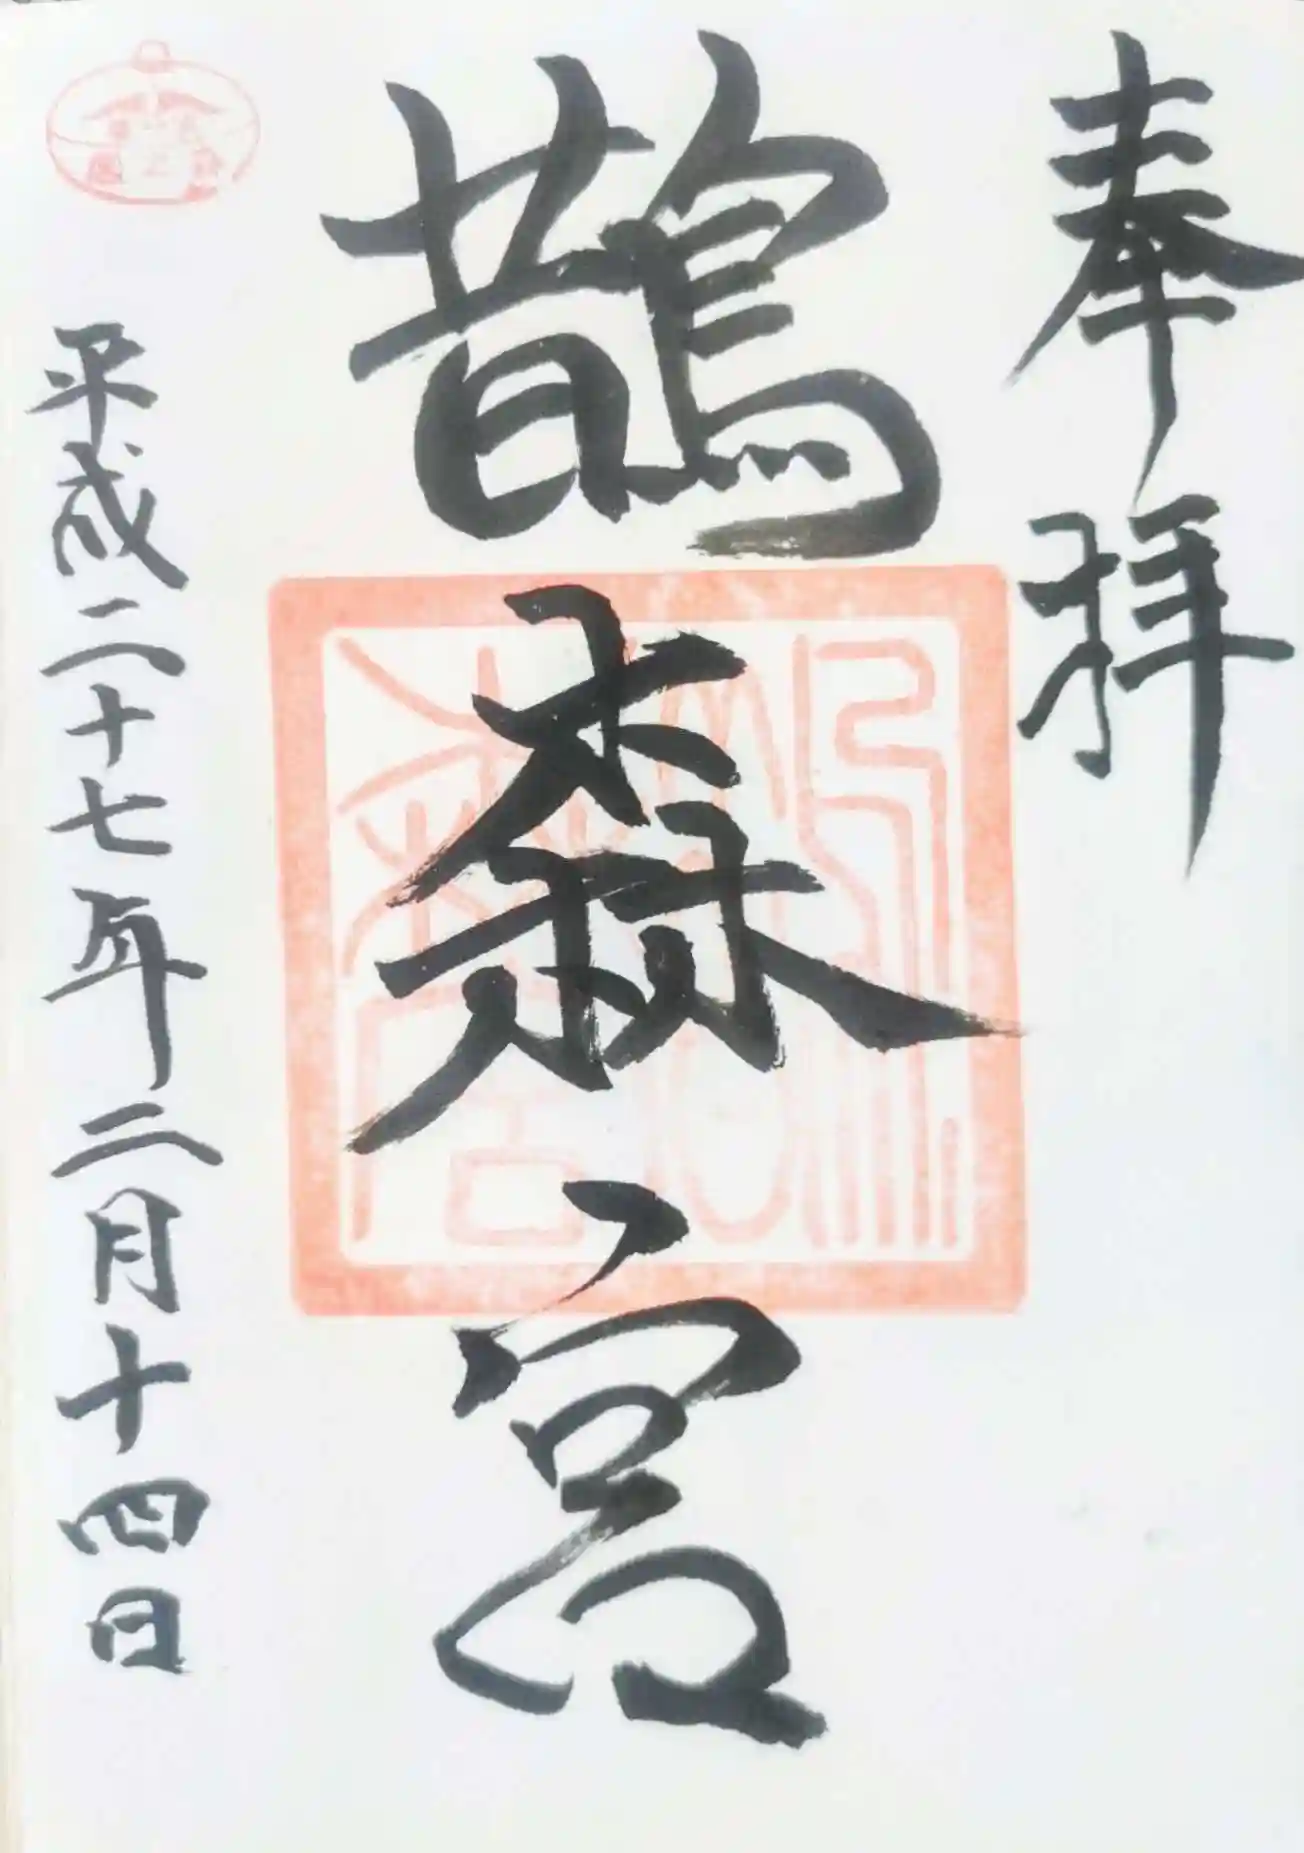 奉拝
鵲森宮
平成二十七年二月十四日